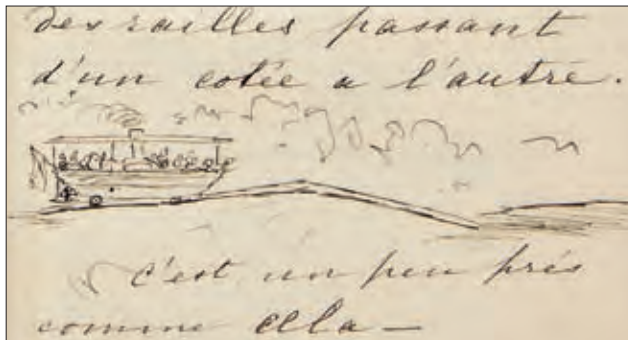 des railles passant
d'un cotée a l'autre.
c'est un peu près
comme cela —